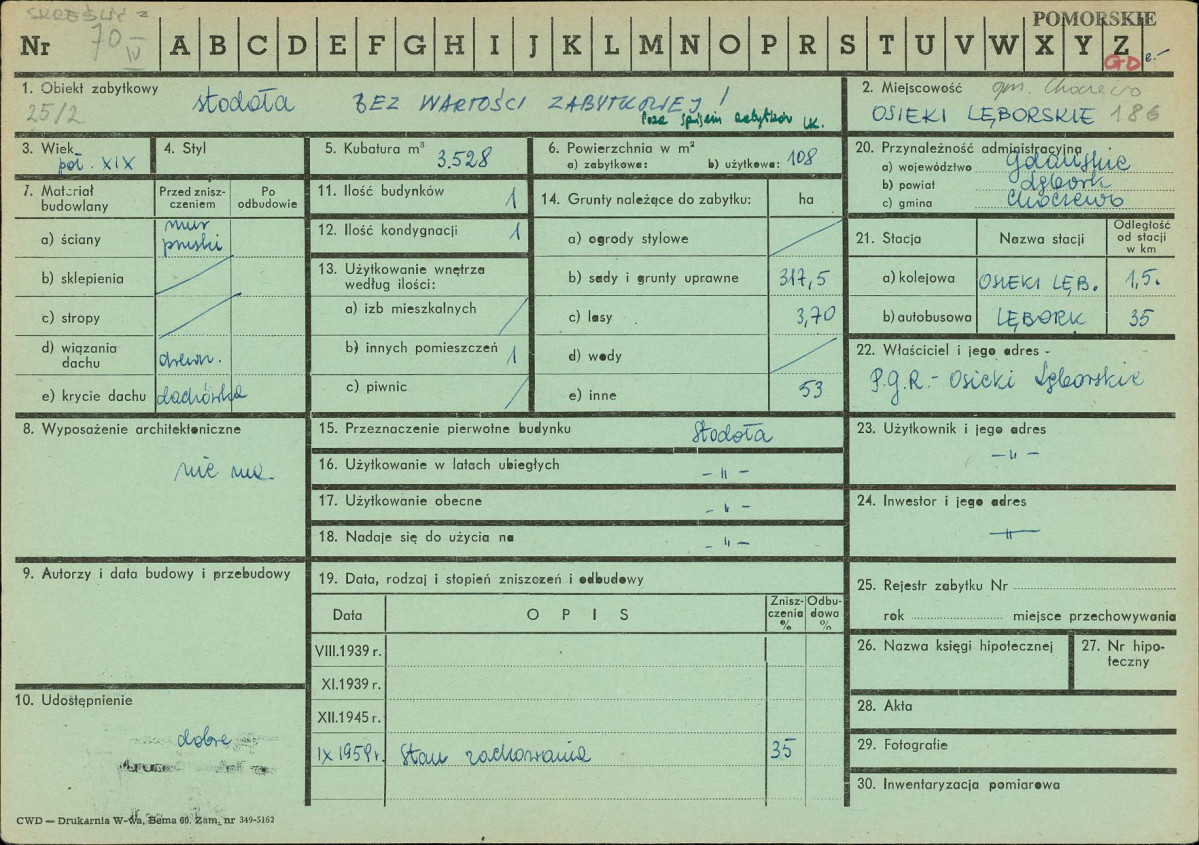 SKREŚLIĆ
POMORSKIE
Nr 70 – IV A B C D E F G H I J K L M N O P R S T U V W X Y Z
GD
1. Obiekt zabytkowy
25/2
stodoła BEZ WARTOŚCI ZABYTKOWEJ!
poza spisem zabytków
2. Miejscowość gm. Choczewo
OSIEKI LĘBORSKIE 186
3. Wiek
poł. XIX
4. Styl
5. Kubatura m³ 3.528
6. Powierzchnia w m²
a) zabytkowa: b) użytkowa: 108
20. Przynależność administracyjna
a) województwo Gdańskie
b) powiat Lębork
c) gmina Choczewo
7. Materiał budowlany
Przed zniszczeniem
Po odbudowie
a) ściany mur pruski
b) sklepienia
c) stropy
d) wiązania dachu drewn.
e) krycie dachu dachówka
11. Ilość budynków 1
12. Ilość kondygnacji 1
13. Użytkowanie wnętrza
według ilości:
a) izb mieszkalnych
b) innych pomieszczeń 1
c) piwnic
14. Grunty należące do zabytku: ha
a) ogrody stylowe
b) sady i grunty uprawne 317,5
c) lasy 3,70
d) wody
e) inne 53
21. Stacja Nazwa stacji Odległość od stacji w km
a) kolejowa OSIEKI LĘB. 1,5.
b) autobusowa LĘBORK 35
22. Właściciel i jego adres -
P.G.R. - Osieki Lęborskie
8. Wyposażenie architektoniczne
nie ma
15. Przeznaczenie pierwotne budynku stodoła
16. Użytkowanie w latach ubiegłych - " -
17. Użytkowanie obecne - " -
18. Nadaje się do użycia na - " -
23. Użytkownik i jego adres
- " -
24. Inwestor i jego adres
- " -
9. Autorzy i data budowy i przebudowy
19. Data, rodzaj i stopień zniszczeń i odbudowy
Data OPIS Zniszczenia % Odbudowa %
VIII.1939 r.
XI.1939 r.
XII.1945 r.
IX 1959 r. Stan zachowania 35
25. Rejestr zabytku Nr
rok miejsce przechowywania
26. Nazwa księgi hipotecznej
27. Nr hipoteczny
28. Akta
29. Fotografie
30. Inwentaryzacja pomiarowa
10. Udostępnienie
dobre
CWD — Drukarnia W-wa, Bema 60. Zam. nr 349-5162